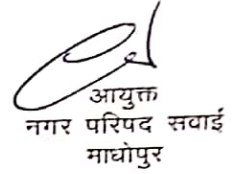 आयुक्त
नगर परिषद सवाई
माधोपुर